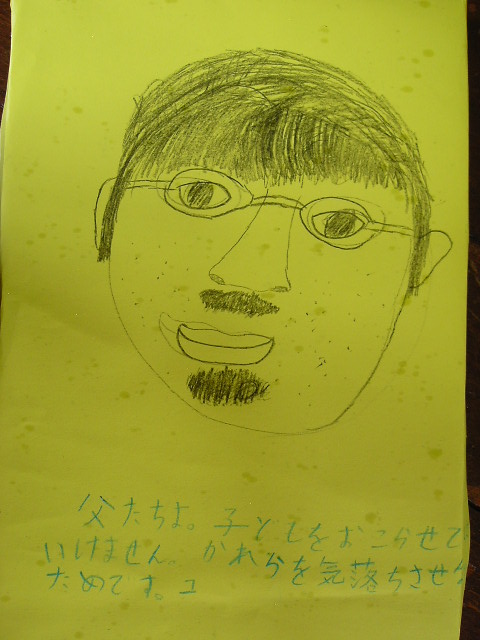 父たちよ。子どもをおこらせて
いけません。かれらを気落ちさせ
ためです。ユ